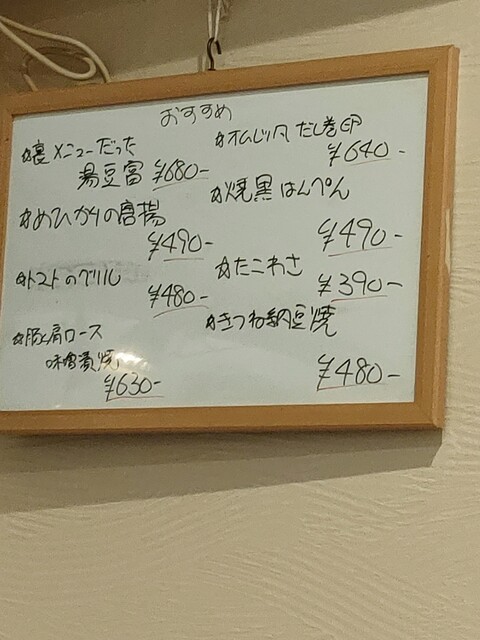 おすすめ
☆裏メニューだった
湯豆富 ¥680-
☆めひかりの唐揚
¥490-
☆トマトのグリル
¥480-
☆豚肩ロース
味噌漬焼
¥630-
☆オムレツ風だし巻印
¥640-
☆焼黒はんぺん
¥490-
☆たこわさ
¥390-
☆きつね納豆焼
¥480-